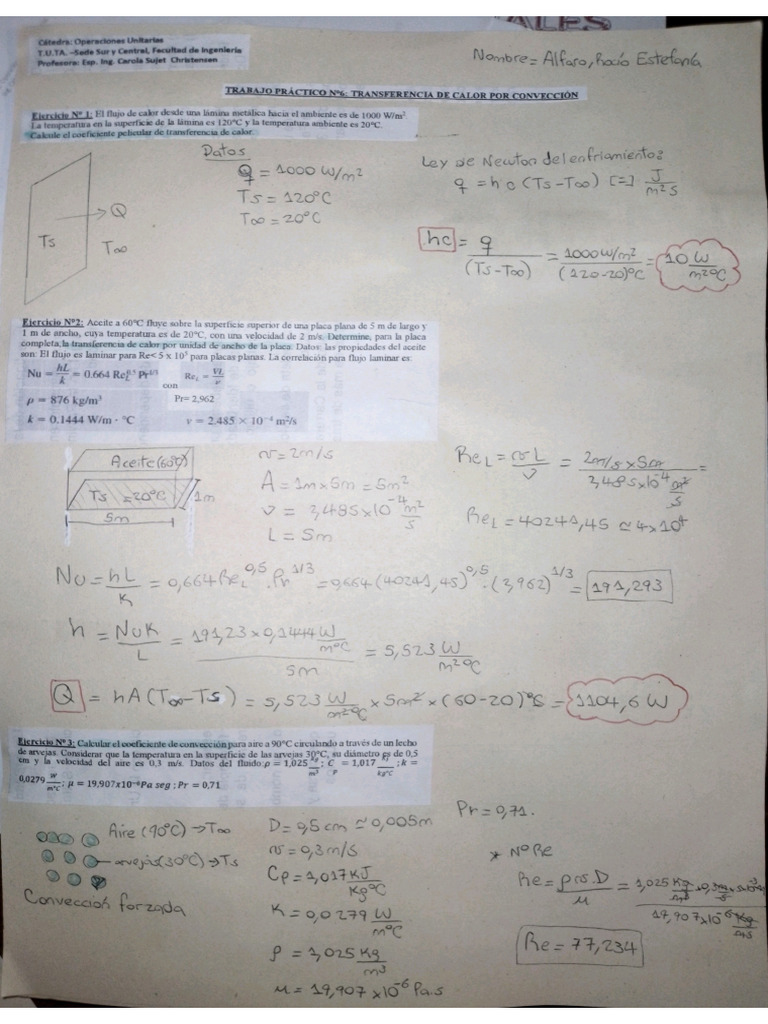 ALES
Cátedra: Operaciones Unitarias
T.U.TA. –Sede Sur y Central, Facultad de Ingeniería
Profesora: Esp. Ing. Carola Sujet Christensen
Nombre = Alfaro, Rocío Estefanía
TRABAJO PRÁCTICO Nº6: TRANSFERENCIA DE CALOR POR CONVECCIÓN
Ejercicio Nº 1: El flujo de calor desde una lámina metálica hacia el ambiente es de 1000 W/m².
La temperatura en la superficie de la lámina es 120°C y la temperatura ambiente es 20°C.
Calcule el coeficiente pelicular de transferencia de calor.
Datos
q = 1000 W/m²
Ts = 120°C
T∞ = 20°C
Ts
Q
T∞
Ley de Newton del enfriamiento:
q = hc (Ts - T∞) [=] J/m²s
hc = q/(Ts - T∞) = 1000 W/m²/(120-20)°C = 10 W/m²°C
Ejercicio Nº2: Aceite a 60°C fluye sobre la superficie superior de una placa plana de 5 m de largo y
1 m de ancho, cuya temperatura es de 20°C, con una velocidad de 2 m/s. Determine, para la placa
completa, la transferencia de calor por unidad de ancho de la placa. Datos: las propiedades del aceite
son: El flujo es laminar para Re< 5 x 10⁵ para placas planas. La correlación para flujo laminar es:
Nu = hL/k = 0.664 Re_L^0.5 Pr^1/3 con Re_L = VL/ν
ρ = 876 kg/m³ Pr= 2,962
k = 0.1444 W/m · °C ν = 2.485 × 10⁻⁴ m²/s
Aceite (60°C)
Ts = 20°C
1m
5m
v = 2m/s
A = 1m x 5m = 5m²
ν = 2,485x10⁻⁴ m²/s
L = 5m
Re_L = vL/ν = 2m/s x 5m/2,485x10⁻⁴ m²/s =
Re_L = 40241,45 ≃ 4x10⁴
Nu = hL/K = 0,664 Re_L^0,5 . Pr^1/3 = 0,664 (40241,45)^0,5 . (2,962)^1/3 = 191,293
h = NuK/L = 191,23 x 0,1444 W/m°C/5m = 5,523 W/m²°C
Q = hA (T∞ - Ts) = 5,523 W/m²°C x 5m² x (60-20)°C = 1104,6 W
Ejercicio Nº 3: Calcular el coeficiente de convección para aire a 90°C circulando a través de un lecho
de arvejas. Considerar que la temperatura en la superficie de las arvejas 30°C, su diámetro es de 0,5
cm y la velocidad del aire es 0,3 m/s. Datos del fluido: ρ = 1,025 kg/m³ ; C_p = 1,017 kJ/kg°C ; k =
0,0279 W/m°C ; μ = 19,907x10⁻⁶Pa seg ; Pr = 0,71
Aire (90°C) → T∞
arvejas (30°C) → Ts
Convección forzada
D = 0,5 cm ≃ 0,005m
v = 0,3 m/s
Cp = 1,017 KJ/Kg°C
K = 0,0279 W/m°C
ρ = 1,025 Kg/m³
μ = 19,907 x10⁻⁶ Pa.s
Pr = 0,71.
* Nº Re
Re = ρ.v.D/μ = 1,025 Kg/m³ x 0,3 m/s x 5x10⁻³/19,907x10⁻⁶ Kg/ms
Re = 77,234